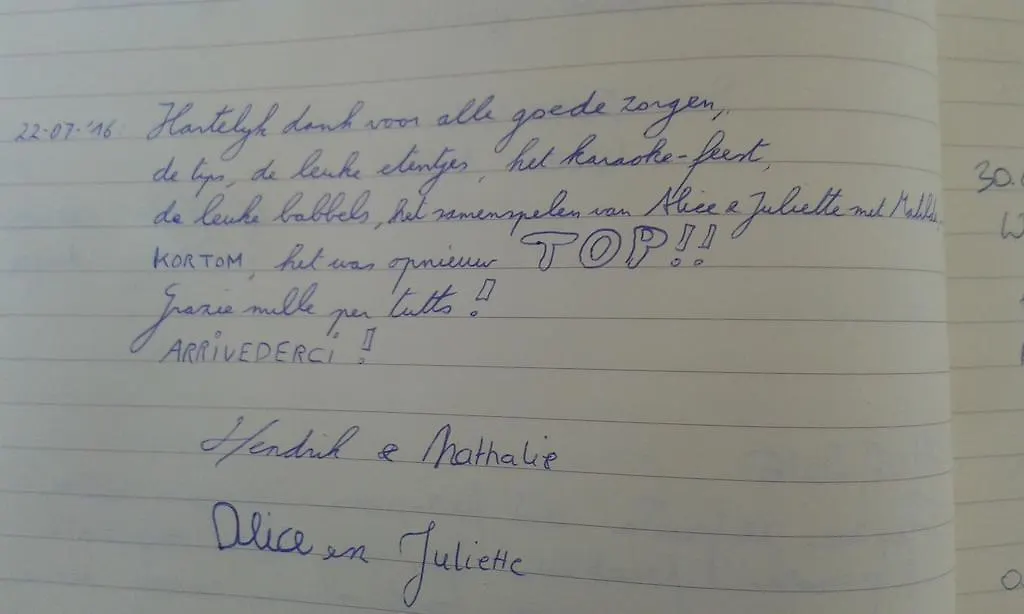 22-07-'16 Hartelijk dank voor alle goede zorgen,
de tips, de leuke etentjes, het karaoke-feest,
de leuke babbels, het samenspelen van Alice & Juliette met
KORTOM, het was opnieuw TOP!!
Grazie mille per tutto!
ARRIVEDERCI!
Hendrik & Nathalie
Alice en Juliette
30.